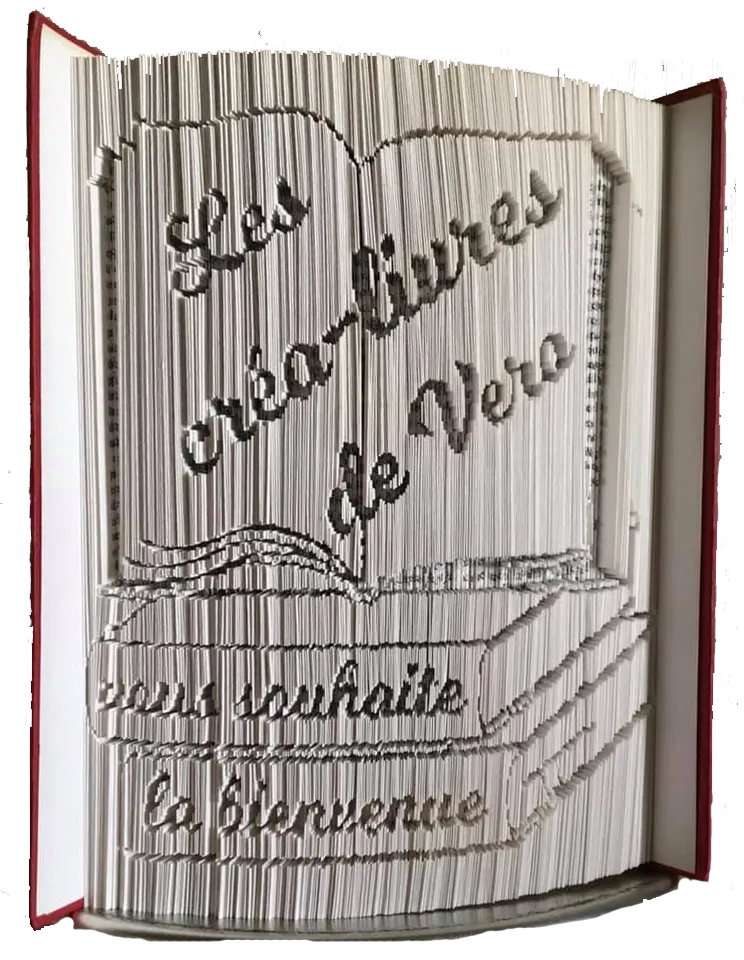 Les
créa-livres
de Vero
vous souhaite
la bienvenue